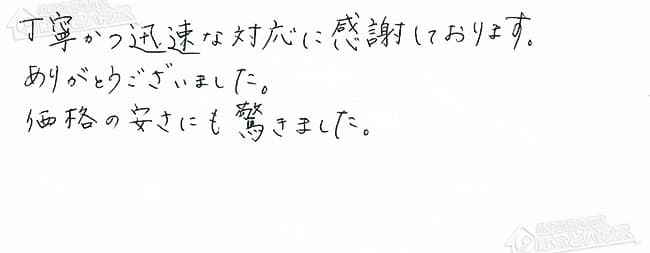 丁寧かつ迅速な対応に感謝しております。
ありがとうございました。
価格の安さにも驚きました。